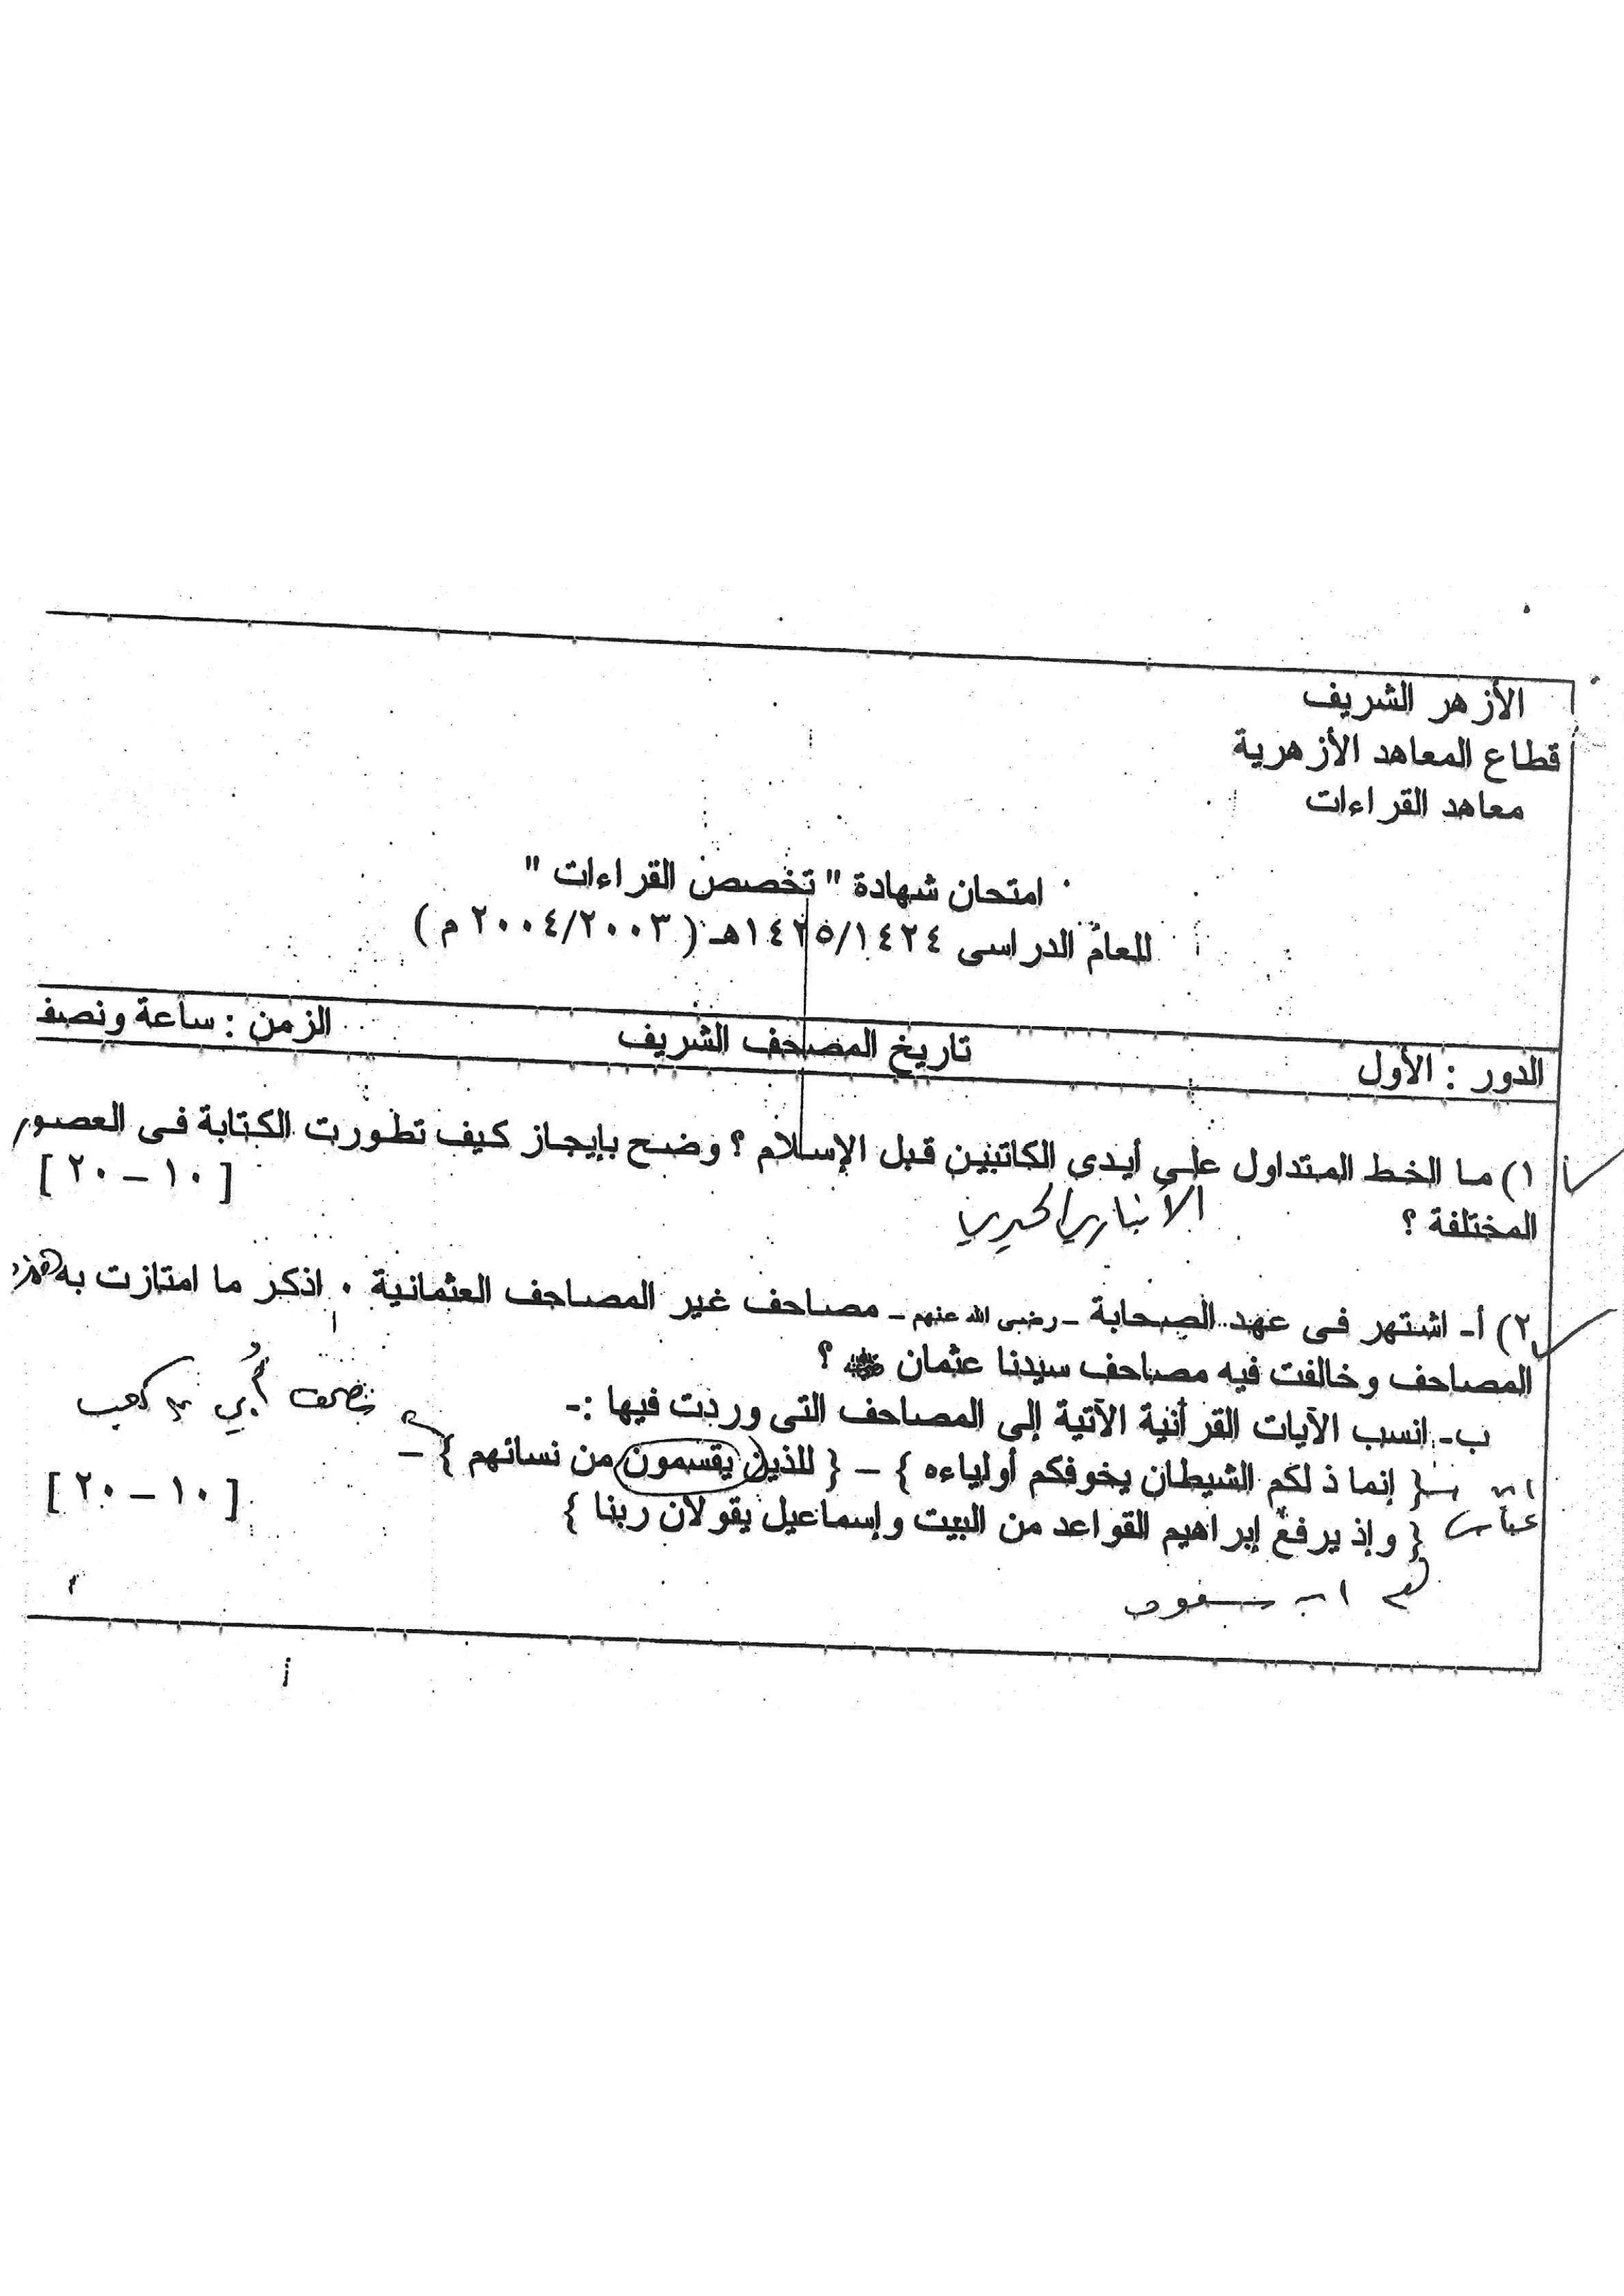 الأزهر الشريف
قطاع المعاهد الأزهرية
معاهد القراءات
امتحان شهادة " تخصص القراءات "
للعام الدراسى ١٤٢٥/١٤٢٤هـ ( ٢٠٠٤/٢٠٠٣ م )
الدور : الأول تاريخ المصحف الشريف الزمن : ساعة ونصف
١) ما الخط المتداول على أيدى الكاتبين قبل الإسلام ؟ وضح بإيجاز كيف تطورت الكتابة فى العصور
المختلفة ؟ [ ١٠ – ٢٠ ]
الأنباري الحيري
٢) أ- اشتهر فى عهد الصحابة - رضى الله عنهم - مصاحف غير المصاحف العثمانية . اذكر ما امتازت به هذه
المصاحف وخالفت فيه مصاحف سيدنا عثمان ؟
ب- انسب الآيات القرآنية الآتية إلى المصاحف التى وردت فيها :-
أُبي بن كعب
{ إنما ذلكم الشيطان يخوفكم أولياءه } – { للذين يقسمون من نسائهم } –
ابن عباس
{ وإذ يرفع إبراهيم القواعد من البيت وإسماعيل يقولان ربنا } [ ١٠ – ٢٠ ]
ابن مسعود